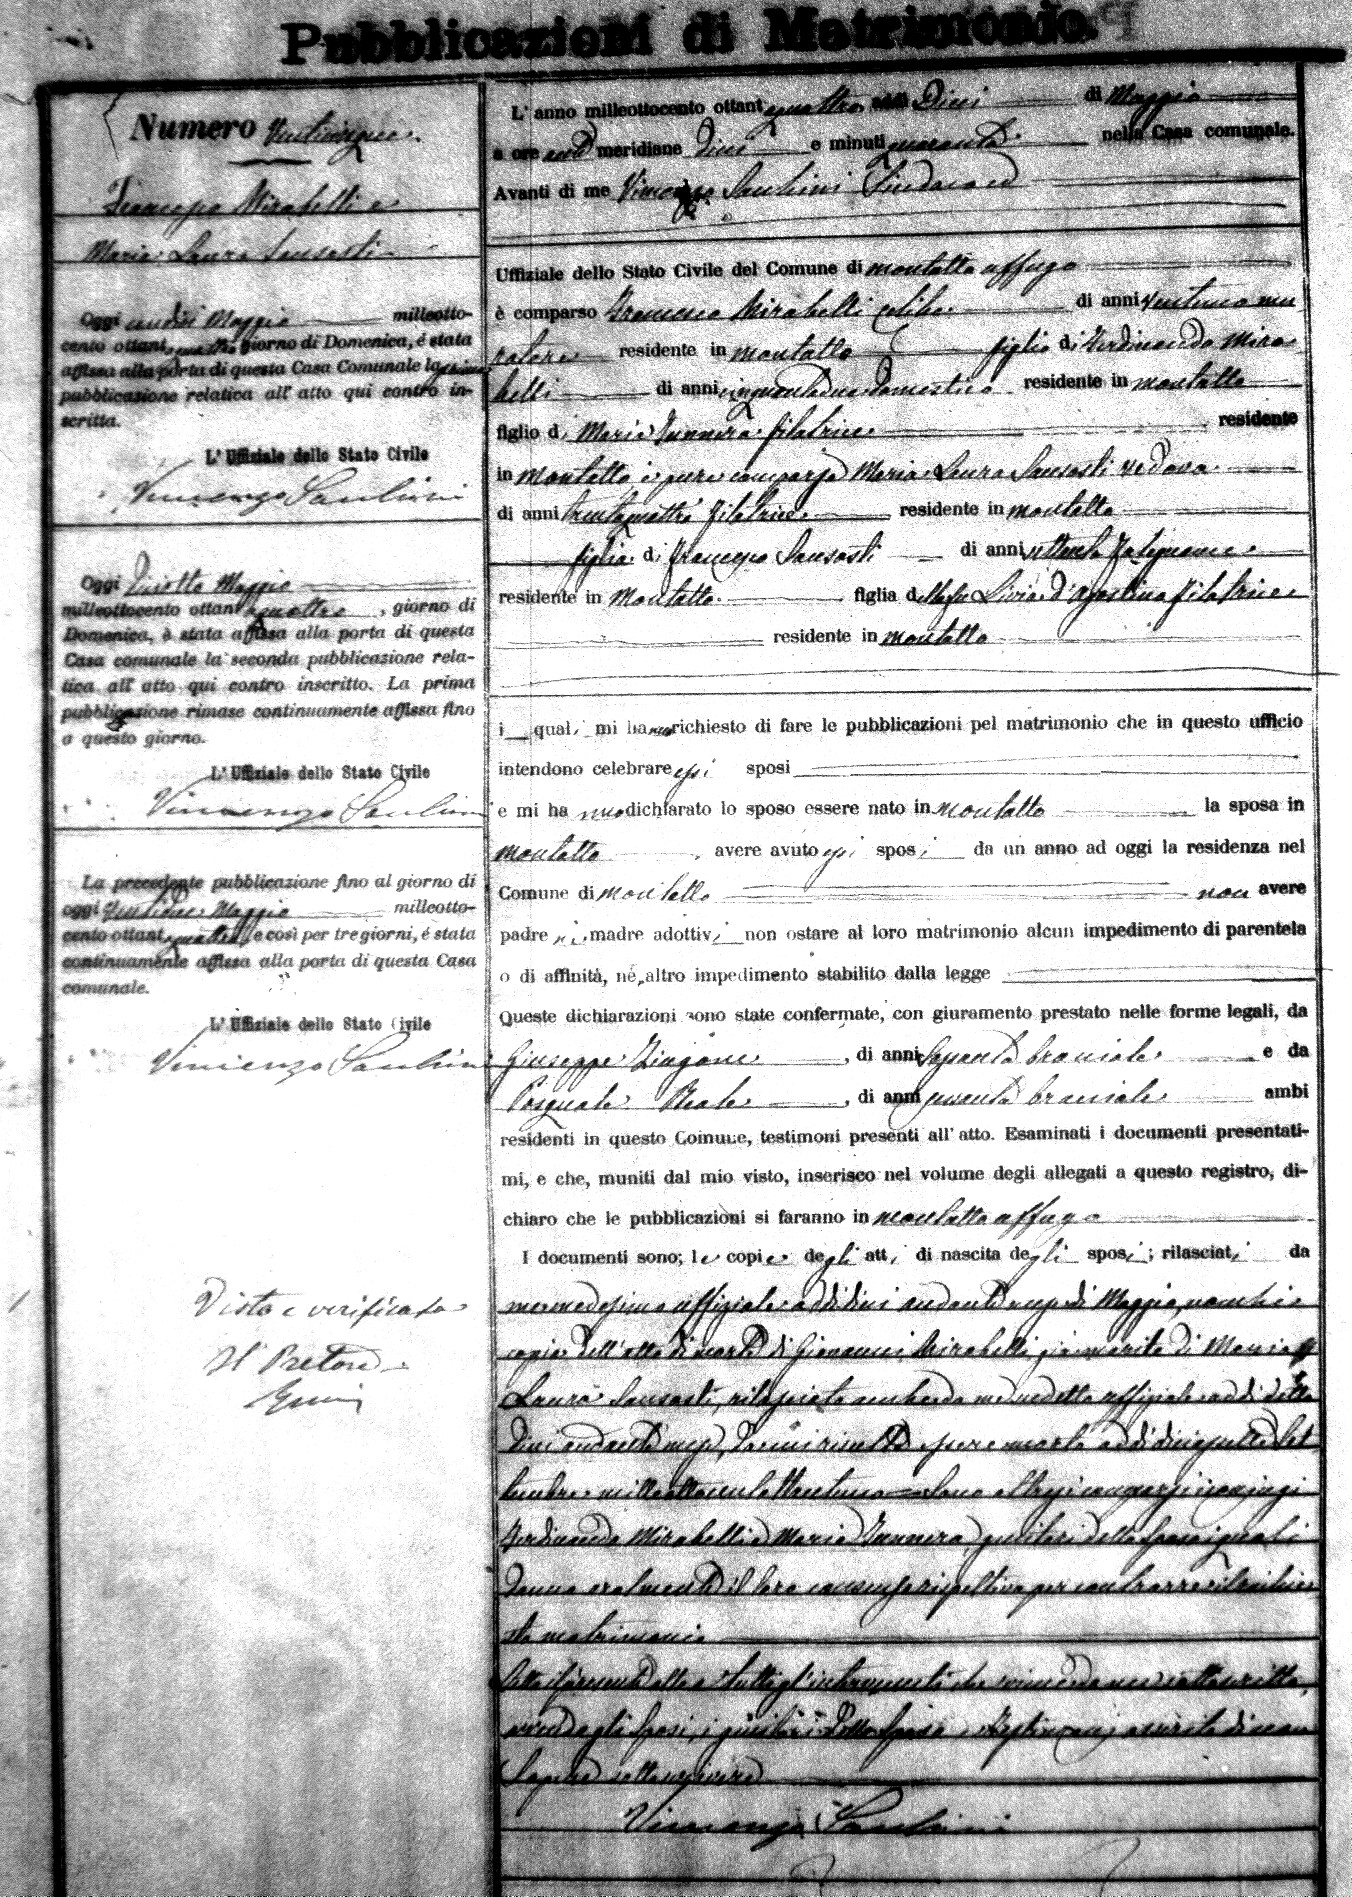 Pubblicazioni di Matrimonio.
Numero Venticinque
Francesco Mirabelli e
Maria Laura Sansosti
Oggi undici Maggio milleotto-
cento ottantaquattro giorno di Domenica, é stata
affissa alla porta di questa Casa Comunale la prima
pubblicazione relativa all' atto qui contro in-
scritta.
L' Uffiziale dello Stato Civile
Vincenzo
Oggi Diciotto Maggio
milleottocento ottantaquattro, giorno di
Domenica, è stata affissa alla porta di questa
Casa comunale la seconda pubblicazione rela-
tiva all' atto qui contro inscritto. La prima
pubblicazione rimase continuamente affissa fino
a questo giorno.
L' Uffiziale dello Stato Civile
Vincenzo
La precedente pubblicazione fino al giorno di
oggi Maggio milleotto-
cento ottantaquattro, e così per tre giorni, é stata
continuamente affissa alla porta di questa Casa
comunale.
L' Uffiziale dello Stato Civile
Vincenzo
Visto e verificato
Il Pretore
L' anno milleottocento ottantaquattro addi Dieci di Maggio
a ore anti meridiane dieci e minuti quaranta nella Casa comunale.
Avanti di me Vincenzo Sindaco ed
Uffiziale dello Stato Civile del Comune di Montalto Uffugo
è comparso Francesco Mirabelli celibe di anni ventuno mu
ratore residente in Montalto figlio di Ferdinando Mira
belli di anni cinquantadue domestico residente in Montalto
figlio di Maria Iannera filatrice residente
in Montalto è pure comparsa Maria Laura Sansosti vedova
di anni trentaquattro filatrice residente in Montalto
figlia di Francesco Sansosti di anni settanta falegname
residente in Montalto figlia d Livia d'Agostino filatrice
residente in Montalto
i quali mi hanno richiesto di fare le pubblicazioni pel matrimonio che in questo ufficio
intendono celebrare essi sposi
e mi hanno dichiarato lo sposo essere nato in Montalto la sposa in
Montalto, avere avuto essi sposi da un anno ad oggi la residenza nel
Comune di Montalto non avere
padre ni madre adottivi non ostare al loro matrimonio alcun impedimento di parentela
o di affinità, né altro impedimento stabilito dalla legge
Queste dichiarazioni sono state confermate, con giuramento prestato nelle forme legali, da
Giuseppe, di anni bracciale e da
Pasquale Reale, di anni sessanta bracciale ambi
residenti in questo Comune, testimoni presenti all' atto. Esaminati i documenti presentati-
mi, e che, muniti dal mio visto, inserisco nel volume degli allegati a questo registro, di-
chiaro che le pubblicazioni si faranno in Montalto Uffugo
I documenti sono; le copie degli atti di nascita degli sposi; rilasciati da
me medesimo uffiziale addi dieci andante mese di Maggio, nonchè
copia dell'atto di morte di Giovanni Mirabelli, già marito di Maria
Laura Sansosti, rilasciata anche da me uffiziale addi detto
Dieci andante mese, essere morto addi diciasette Set
tembre Sono altresì comparsi i coniugi
Ferdinando Mirabelli e Maria Iannera, genitori dello sposo, i quali
danno oralmente il loro consenso rispettivo per contrarre il
sto matrimonio
Letto il presente atto a tutti gl'intervenuti che
avendo gli sposi, i genitori dello sposo e testimoni asserito di non
sapere sottoscrivere
Vincenzo